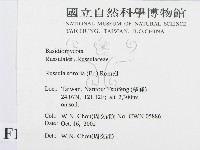 國立自然科學博物館
NATIONAL MUSEUM OF NATURAL SCIENCE
TAICHUNG, TAIWAN, R.O.CHINA
Basidiomycota
Russulales, Russulaceae
Russula sororia (Fr.) Romell
Loc. Taiwan, Nantou: Tsuifeng (翠峰)
24.07N, 121.12E; alt. 2,300m
on soil
Col. W. N. Chou (周文能) No. CWN 05886
Date Oct. 16, 2002
Det. W. N. Chou (周文能)